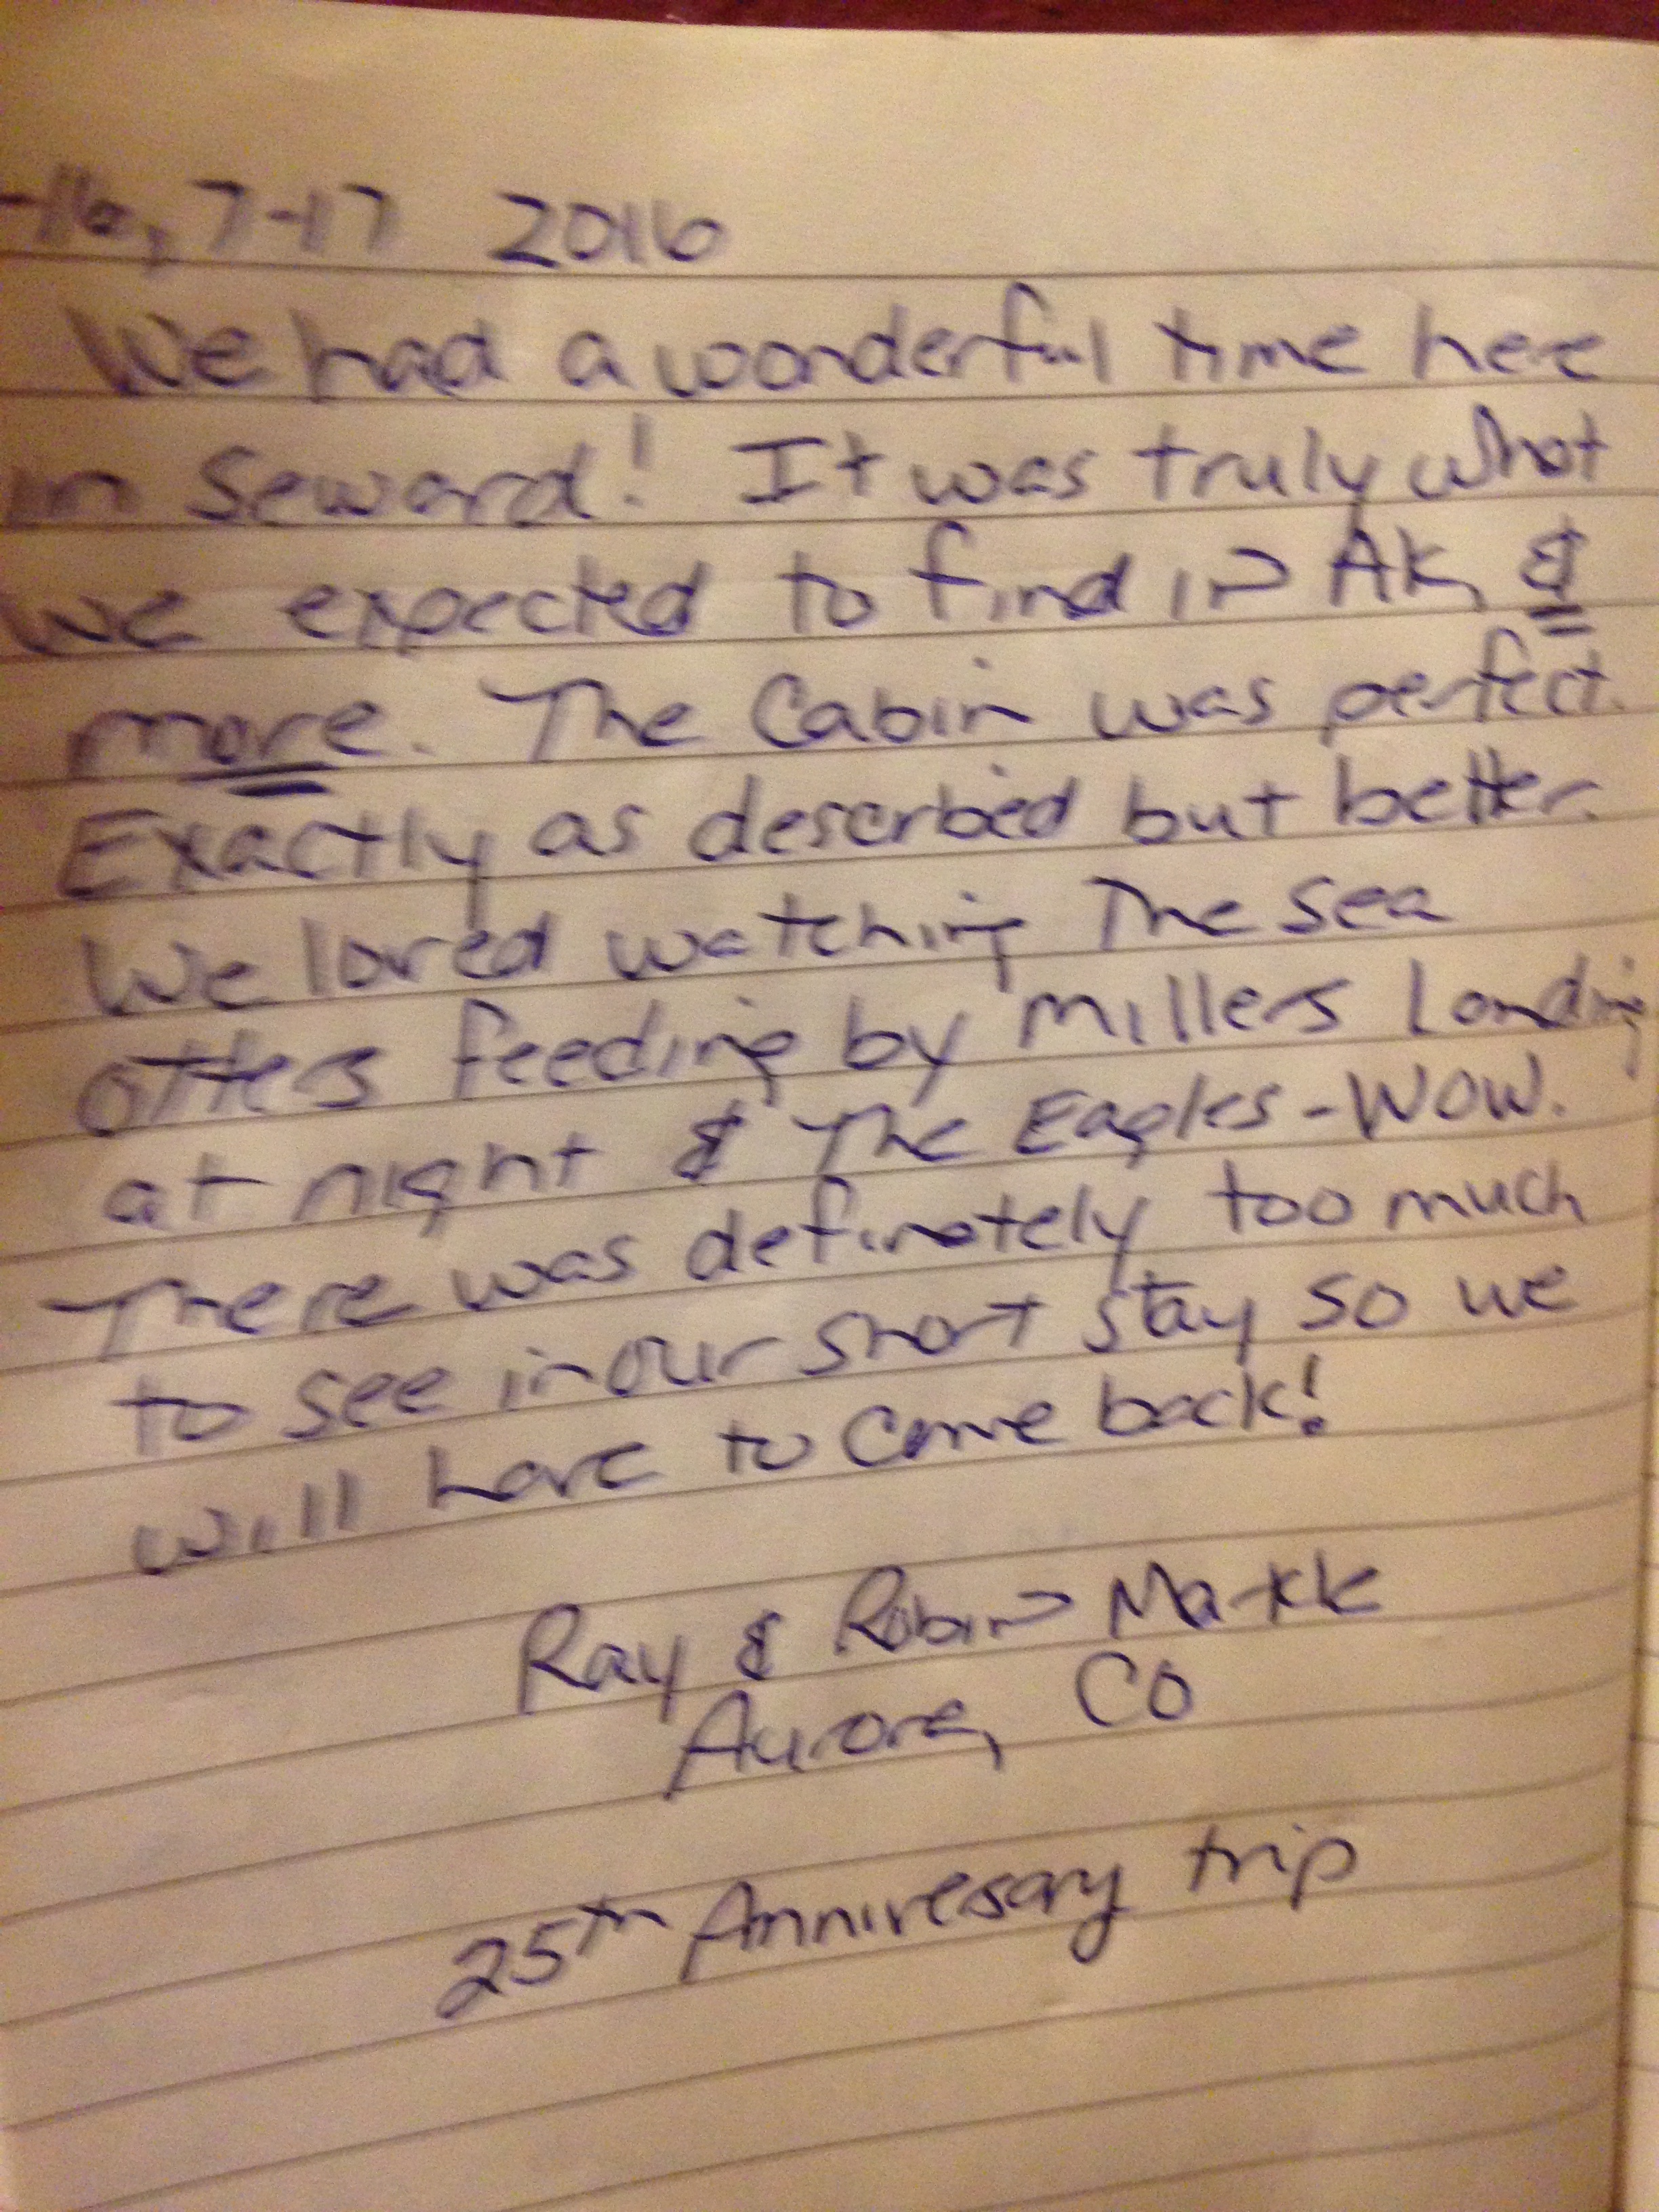 -16, 7-17 2016
We had a wonderful time here
in Seward! It was truly what
we expected to find in AK, &
more. The Cabin was perfect.
Exactly as described but better.
We loved watching The sea
otters feeding by Millers Landing
at night & The Eagles - WOW.
There was definately too much
to see in our short stay so we
will have to come back!
Ray & Robin Markle
Aurora, CO
25th Anniversary trip